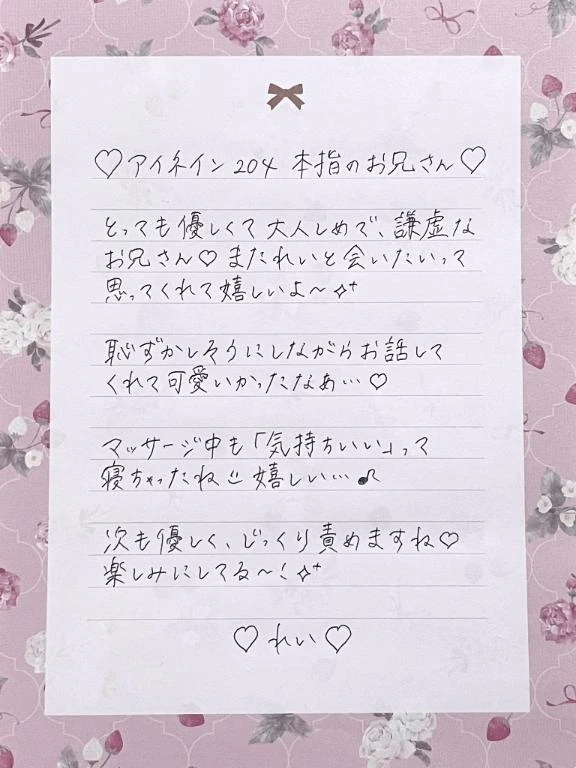 ♡アイネイン204 本指のお兄さん♡
とっても優しくて大人しめで、謙虚な
お兄さん♡またれいと会いたいって
思ってくれて嬉しいよ〜✧⁺
恥ずかしそうにしながらお話して
くれて可愛いかったなぁ…♡
マッサージ中も「気持ちいい」って
寝ちゃったね 嬉しい…♪
次も優しく、じっくり責めますね♡
楽しみにしてる〜!✧⁺
♡れい♡